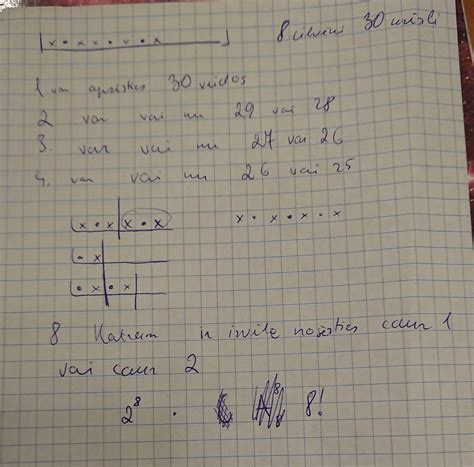 x • x x • x • x 8 cilvēki 30 krēsli
1 var apsēsties 30 veidos
2 var vai nu 29 vai 28
3. var vai nu 27 vai 26
4. var vai nu 26 vai 25
x • x x • x x • x • x • x
• x
• x • x
8 Katram ir izvēle nosēsties caur 1
vai caur 2
2⁸ • 8!